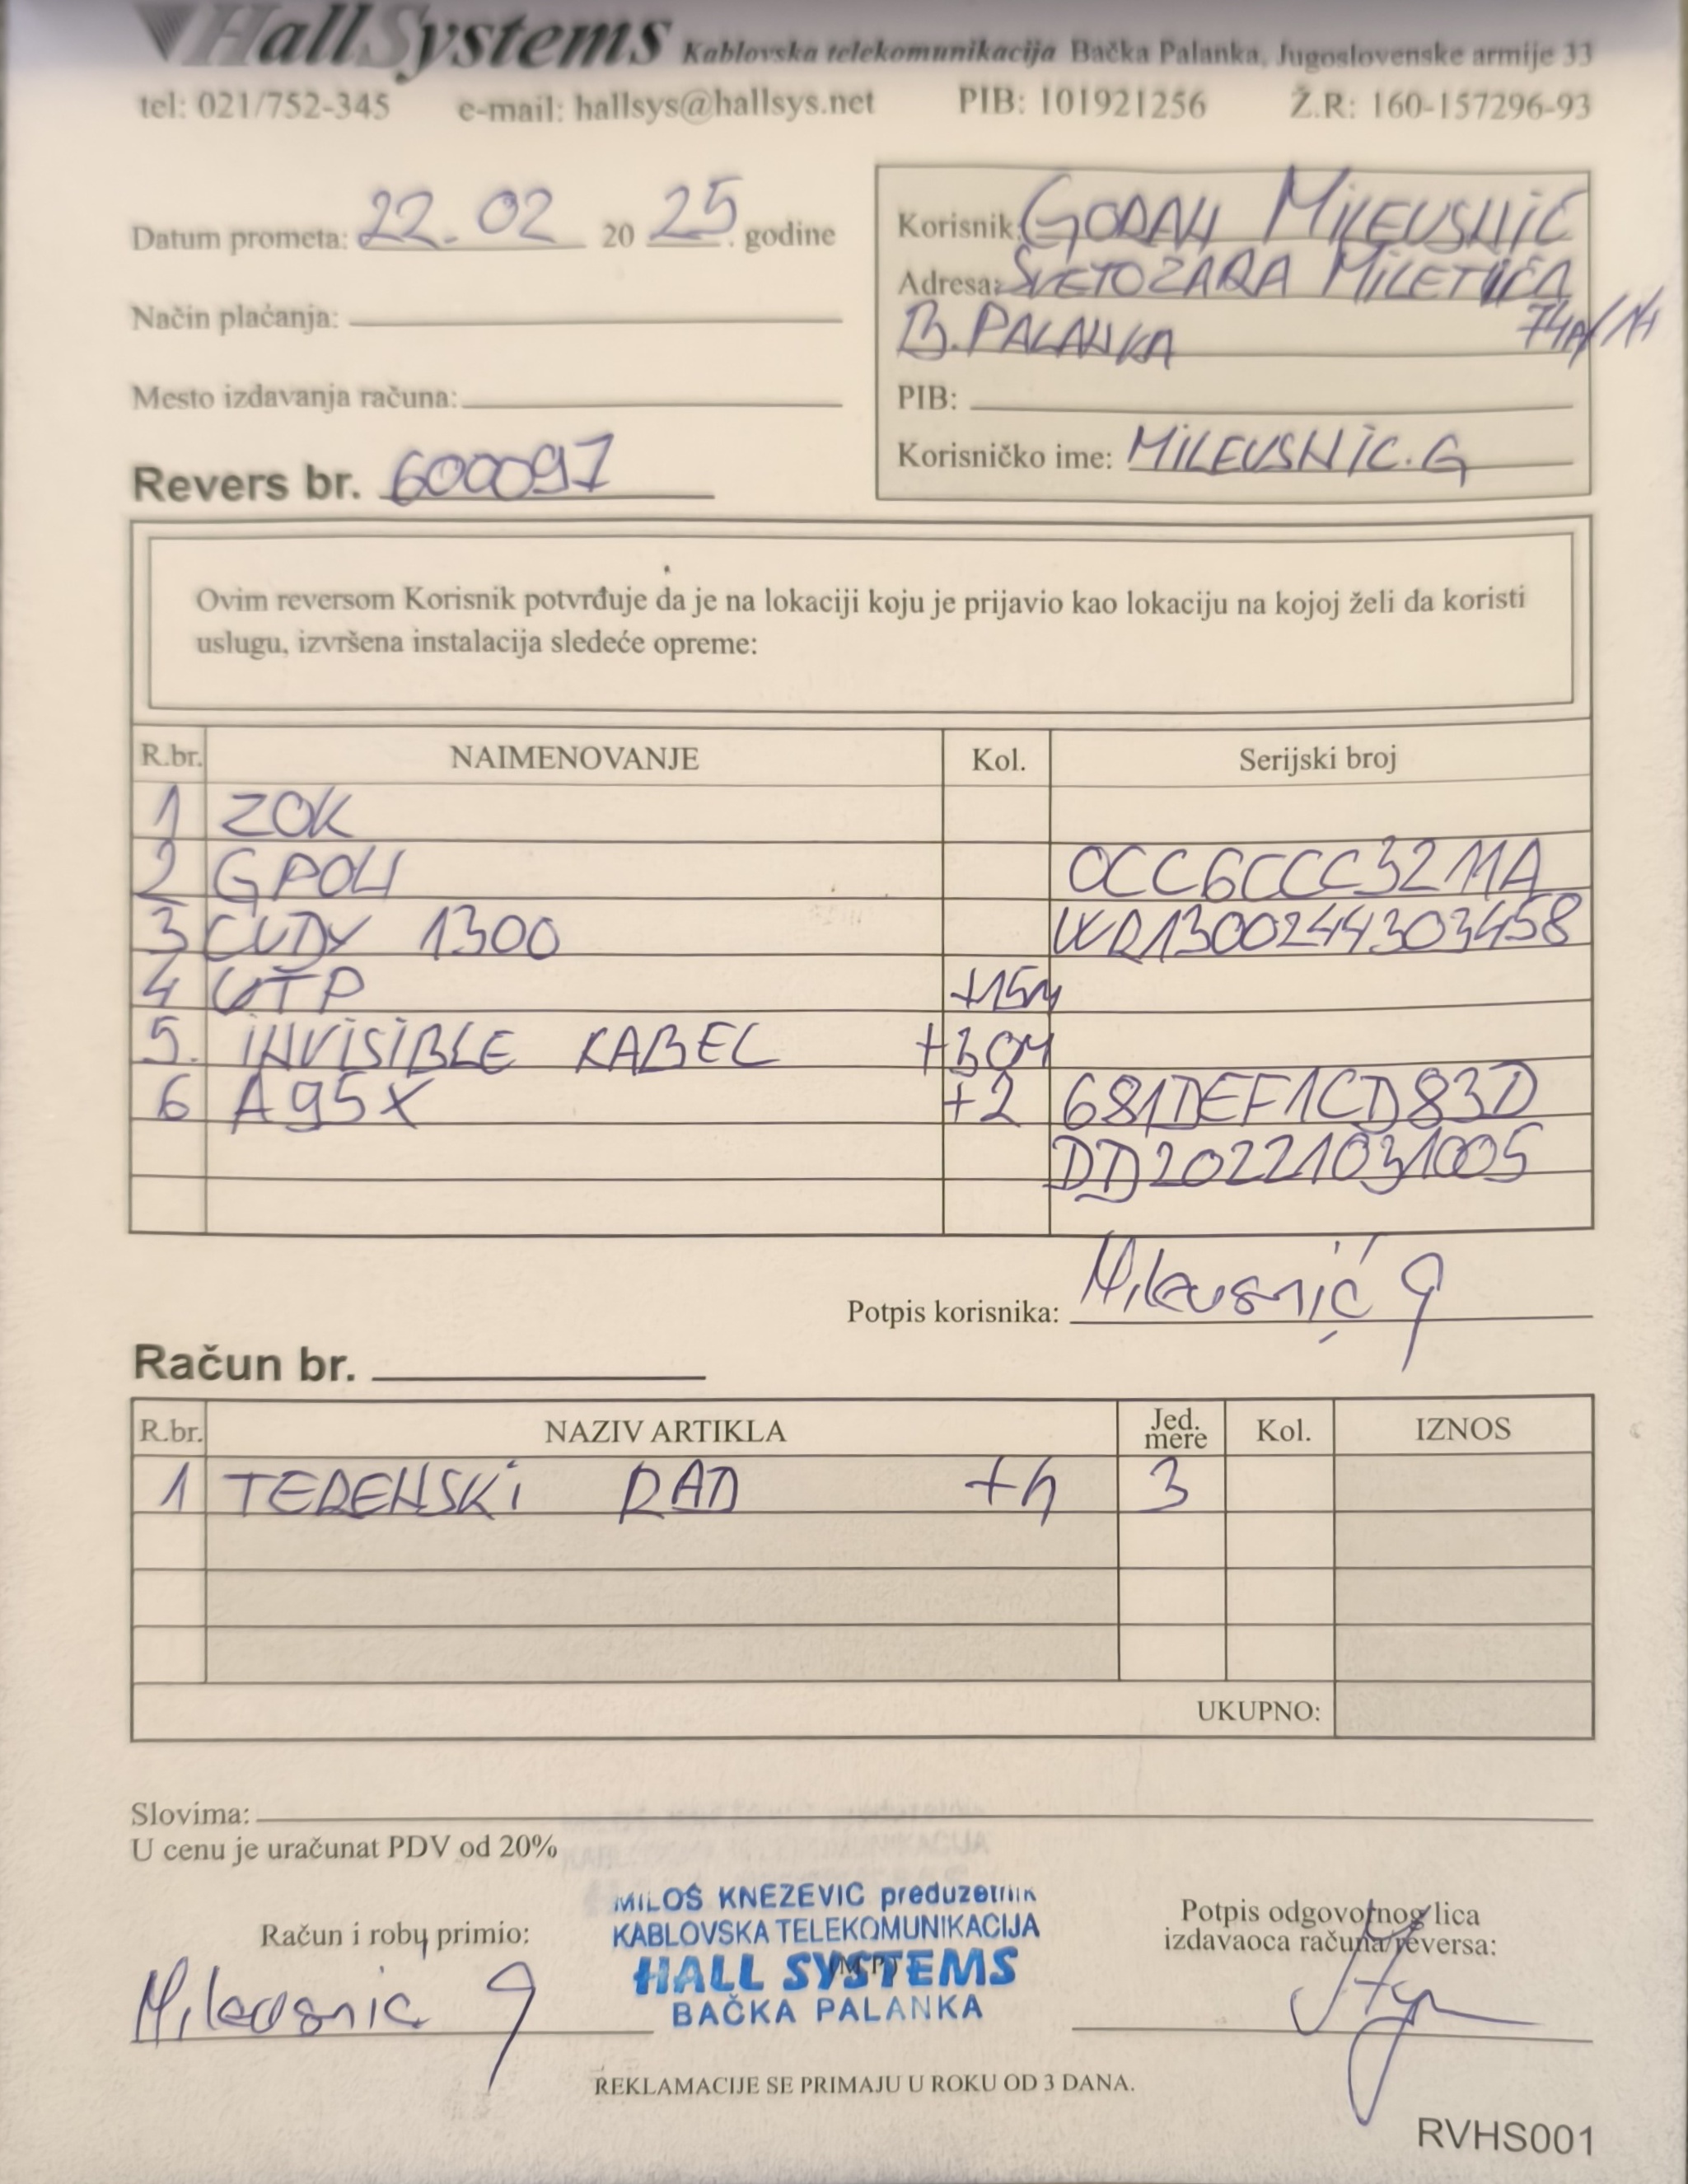 HallSystems Kablovska telekomunikacija Bačka Palanka, Jugoslovenske armije 33
tel: 021/752-345 e-mail: hallsys@hallsys.net PIB: 101921256 Ž.R: 160-157296-93
Datum prometa: 22.02 2025. godine
Način plaćanja:
Mesto izdavanja računa:
Revers br. 600097
Korisnik: GORAN MILEUSNIĆ
Adresa: SVETOZARA MILETIĆA
B. PALANKA 74A/
PIB:
Korisničko ime: MILEUSNIC.G
Ovim reversom Korisnik potvrđuje da je na lokaciji koju je prijavio kao lokaciju na kojoj želi da koristi
uslugu, izvršena instalacija sledeće opreme:
R.br. NAIMENOVANJE Kol. Serijski broj
1 ZOK
2 GPON 0CC6CCC3211A
3 CUDY 1300 WR13002443303458
4 UTP +15m
5. INVISIBLE KABEL +30m
6 A95X +2 681DEF1CD83D
DD20221031005
Potpis korisnika: Mileusnić G
Račun br.
R.br. NAZIV ARTIKLA Jed. mere Kol. IZNOS
1 TERENSKI RAD +h 3
UKUPNO:
Slovima:
U cenu je uračunat PDV od 20%
Račun i robu primio:
Mileusnic G
MILOŠ KNEŽEVIĆ preduzetnik
KABLOVSKA TELEKOMUNIKACIJA
HALL SYSTEMS
BAČKA PALANKA
M.P.
Potpis odgovornog lica
izdavaoca računa/reversa:
REKLAMACIJE SE PRIMAJU U ROKU OD 3 DANA.
RVHS001